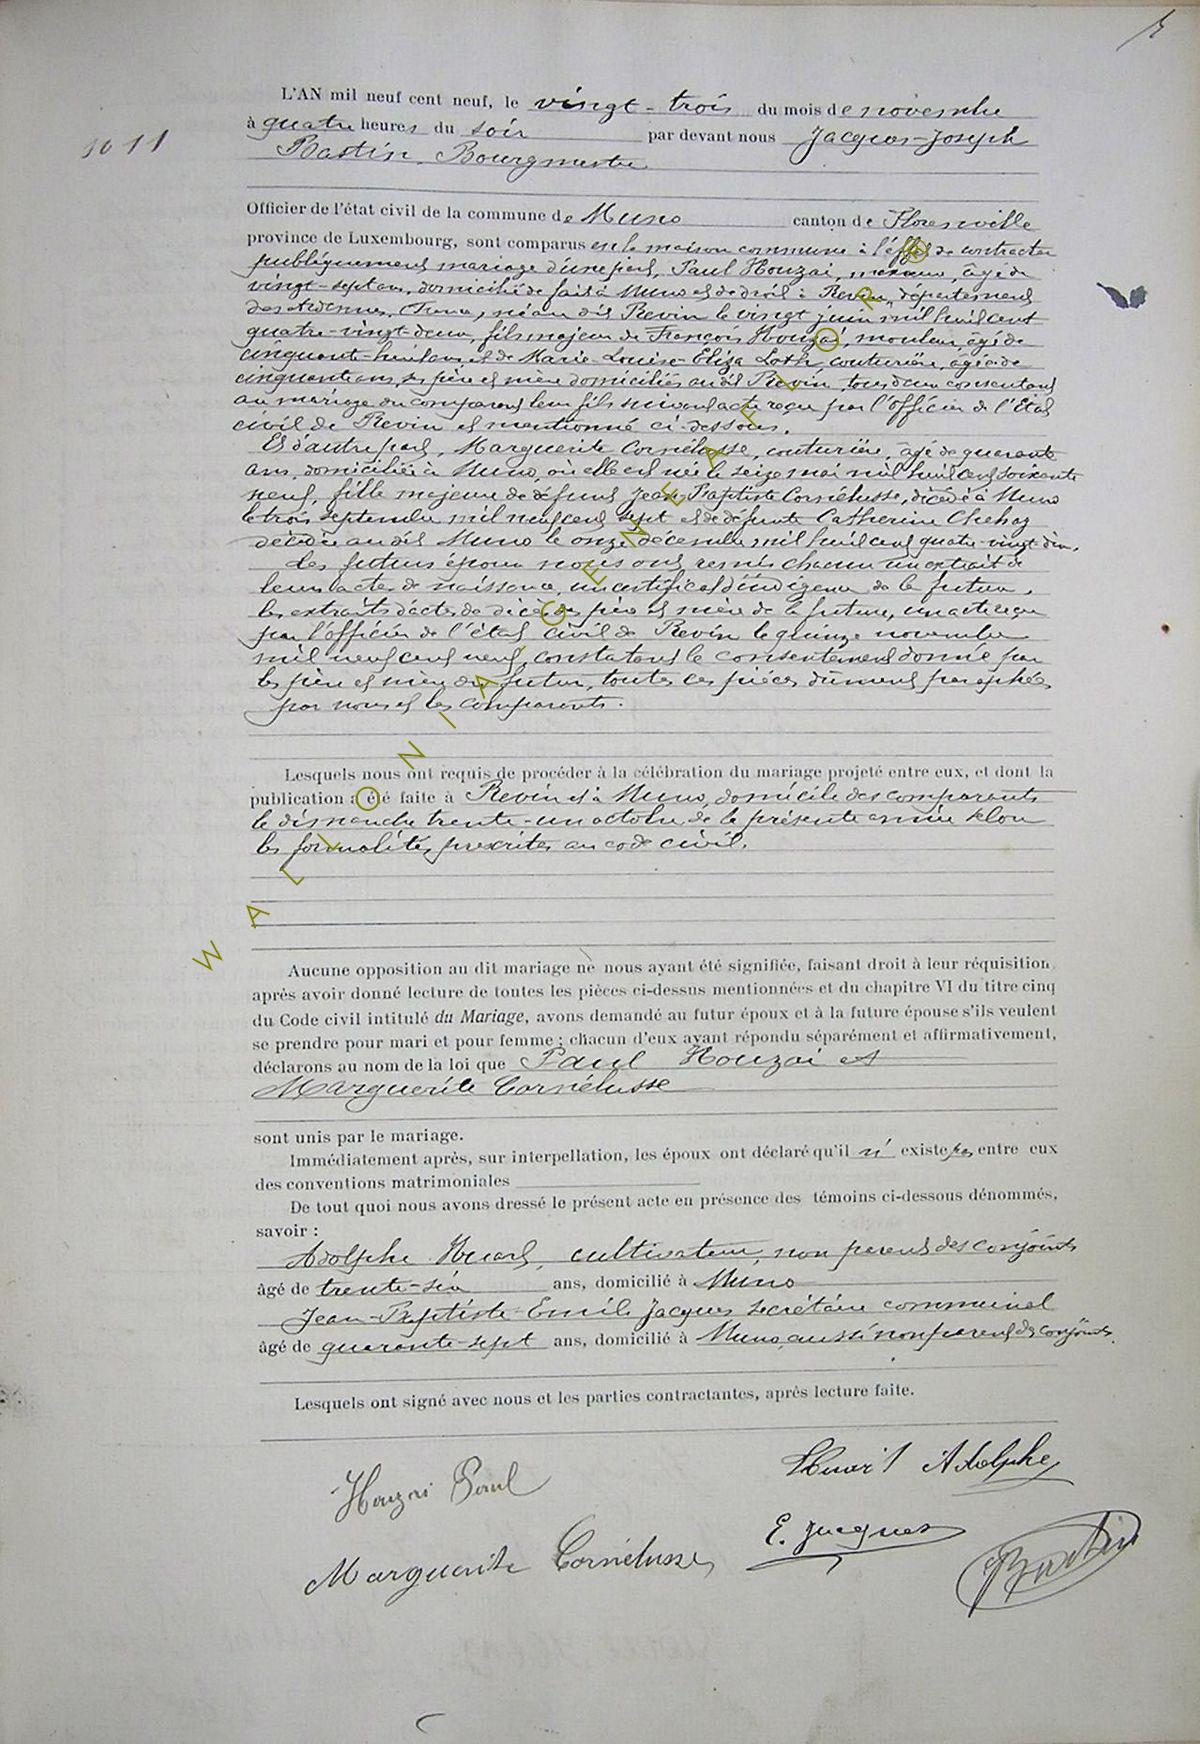 5
L'AN mil neuf cent neuf, le vingt-trois du mois de novembre
à quatre heures du soir par devant nous Jacques-Joseph
N° 11
Bastin, Bourgmestre
Officier de l'état civil de la commune de Muno canton de Florenville
province de Luxembourg, sont comparus en la maison commune à l'effet de contracter
publiquement mariage d'une part, Paul Houzai, âgé de
vingt-sept ans, domicilié de fait à Muno et de droit à Revin, département
des Ardennes, France, né au dit Revin le vingt juin mil huit cent
quatre-vingt-deux, fils majeur de François Houzai, mouleur, âgé de
cinquante-huit ans, et de Marie-Louise-Eliza Loth, couturière, âgée de
cinquante ans, ses père et mère domiciliés au dit Revin, tous deux consentant
au mariage du comparant leur fils suivant acte reçu par l'officier de l'Etat
civil de Revin et mentionné ci-dessous.
Et d'autre part, Marguerite Cornélusse, couturière, âgé de quarante
ans, domiciliée à Muno, où elle est née le seize mai mil huit cent soixante
neuf, fille majeure de défunt Jean-Baptiste Cornélusse, décédé à Muno
le trois septembre mil neuf cent sept et de défunte Catherine
décédée au dit Muno le onze décembre mil huit cent quatre-vingt-dix.
Les futurs époux nous ont remis chacun un extrait de
leur acte de naissance, un certificat d'indigence de la future,
les extraits d'acte de décès des père et mère de la future, un acte reçu
par l'officier de l'état civil de Revin le quinze novembre
mil neuf cent neuf, constatant le consentement donné par
les père et mère du futur, toutes ces pièces dûment paraphées
par nous et les comparants.
Lesquels nous ont requis de procéder à la célébration du mariage projeté entre eux, et dont la
publication a été faite à Revin et à Muno, domicile des comparants
le dimanche trente-un octobre de la présente année selon
les formalités prescrites au code civil.
Aucune opposition au dit mariage ne nous ayant été signifiée, faisant droit à leur réquisition
après avoir donné lecture de toutes les pièces ci-dessus mentionnées et du chapitre VI du titre cinq
du Code civil intitulé du Mariage, avons demandé au futur époux et à la future épouse s'ils veulent
se prendre pour mari et pour femme ; chacun d'eux ayant répondu séparément et affirmativement,
déclarons au nom de la loi que Paul Houzai et
Marguerite Cornélusse
sont unis par le mariage.
Immédiatement après, sur interpellation, les époux ont déclaré qu'il n' existe pas entre eux
des conventions matrimoniales
De tout quoi nous avons dressé le présent acte en présence des témoins ci-dessous dénommés,
savoir :
Adolphe Huart, cultivateur, non parent des conjoints
âgé de trente-six ans, domicilié à Muno
Jean-Baptiste-Emile Jacques secrétaire communal
âgé de quarante-sept ans, domicilié à Muno, aussi non parent des conjoints.
Lesquels ont signé avec nous et les parties contractantes, après lecture faite.
Huart Adolphe
Houzai Paul
E. Jacques
Marguerite Cornélusse
Bastin
WALLONIA-GENEAFLOR©